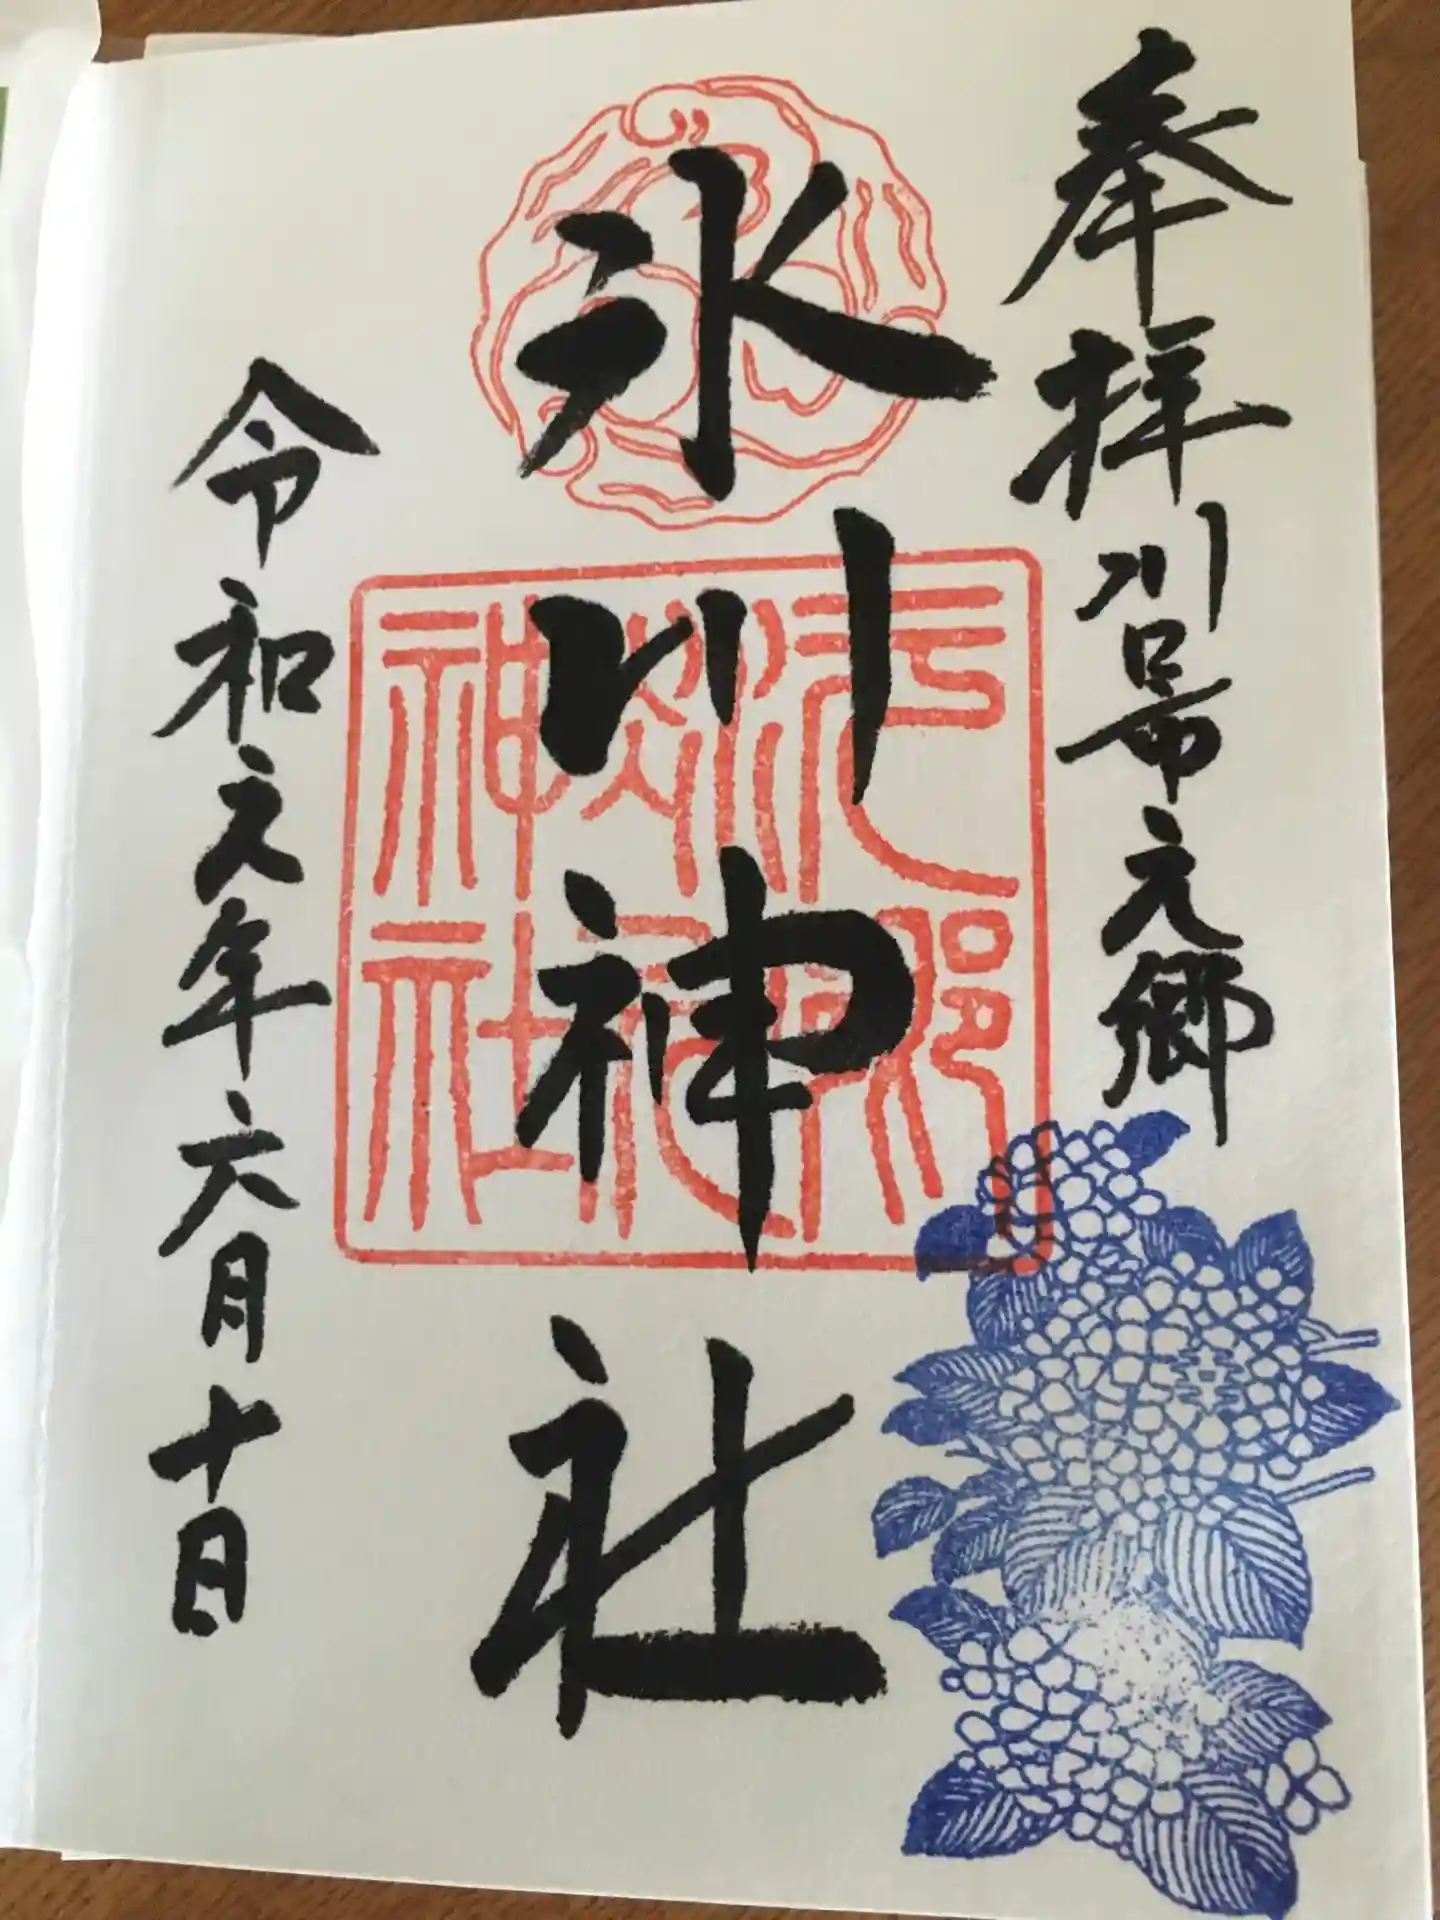 奉拝 川口市元郷
氷川神社
元郷氷川神社
令和元年六月十日